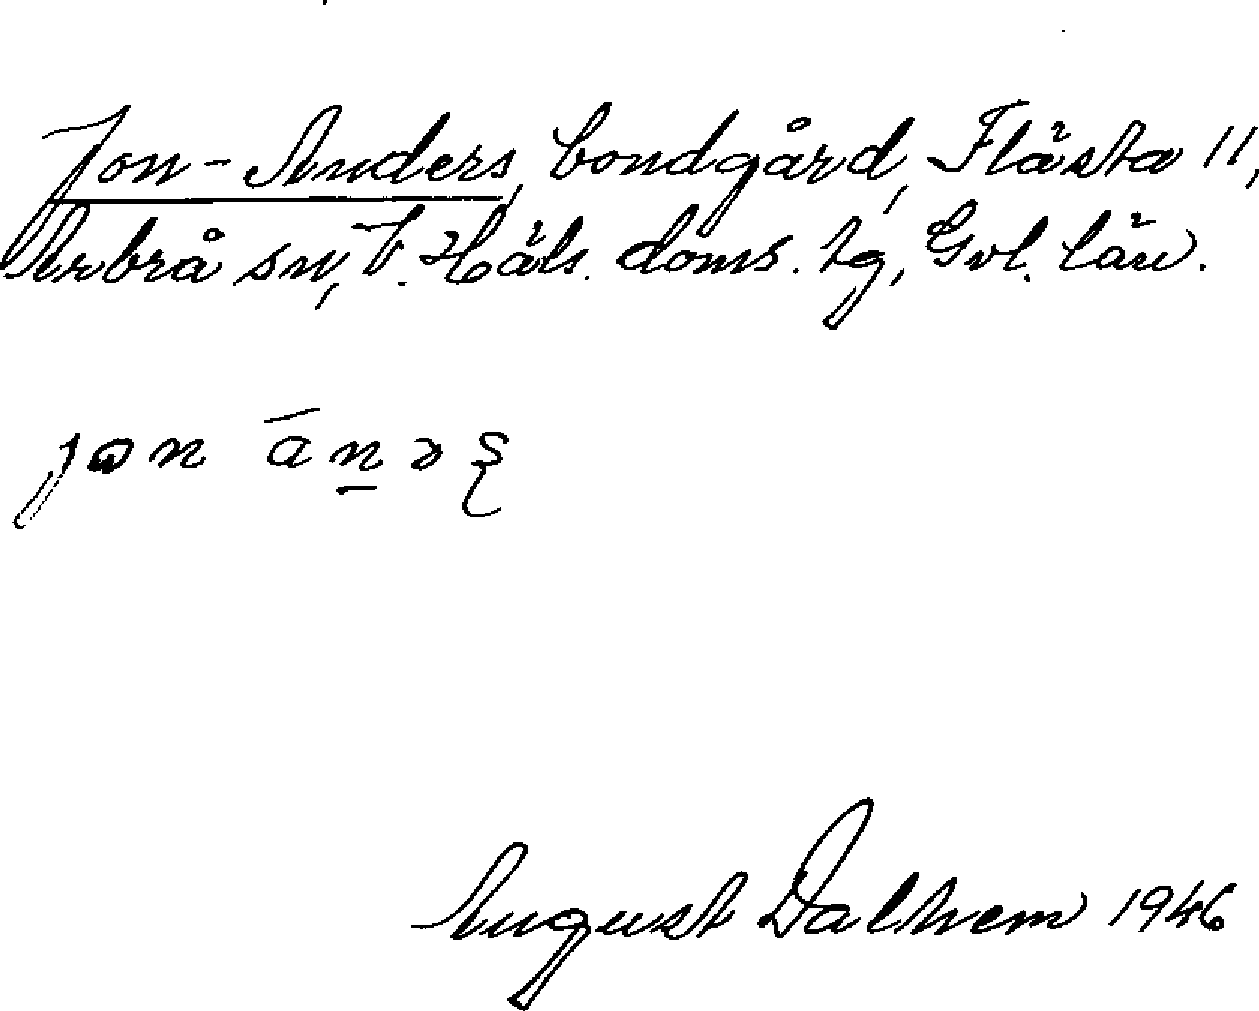 Jon-Anders, bondgård, Flästa 11,
Arbrå sn, V. Häls. doms. tg, Gvl. län.
jon ānəʂ
August Dalhem 1946